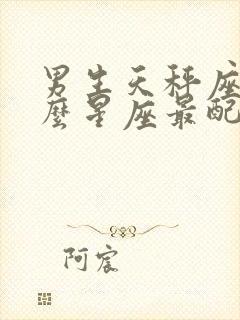 男生天秤座
麼星座最配
阿宸